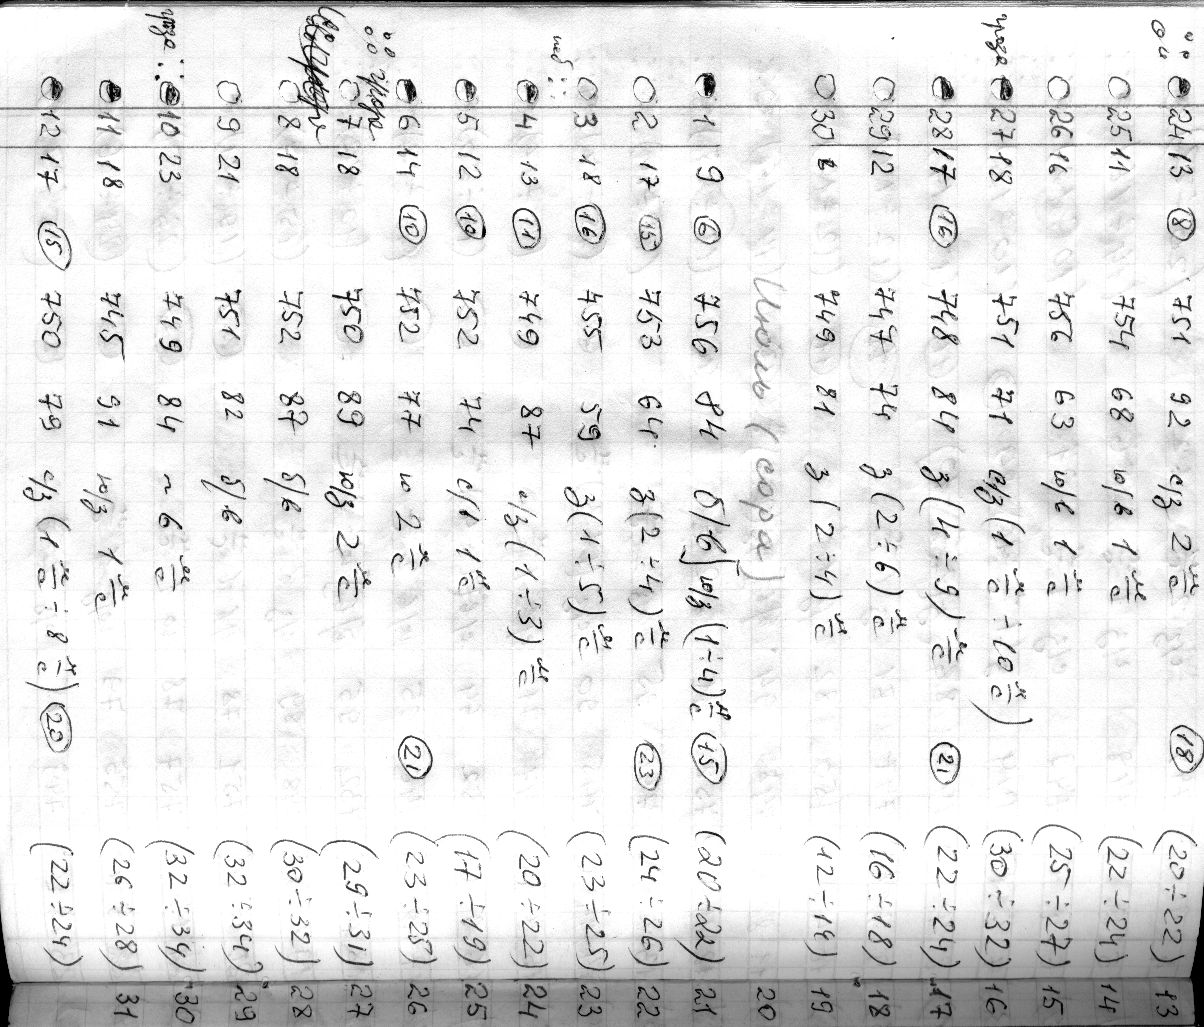 24 13 (8) 751 92 с/з 2 м/с (18) (20÷22) 13
25 11 754 68 ю/в 1 м/с (22÷24) 14
26 16 756 63 ю/в 1 м/с (25÷27) 15
27 18 751 71 (1 м/с ÷ 10 м/с) (30÷32) 16
28 17 (16) 748 84 з (4÷9) м/с (21) (22÷24) 17
29 12 747 74 з (2÷6) м/с (16÷18) 18
30 749 81 з (2÷4) м/с (12÷14) 19
Июль (сора) 20
1 9 (6) 756 84 б/в ю/з (1÷4) м/с (15) (20÷22) 21
2 17 (15) 753 64 з (2÷4) м/с (23) (24÷26) 22
3 18 (16) 755 59 з (1÷5) м/с (23÷25) 23
4 13 (11) 749 87 с/з (1÷3) м/с (20÷22) 24
5 12 (10) 752 74 с/в 1 м/с (17÷19) 25
6 14 (10) 752 77 ю 2 м/с (21) (23÷25) 26
7 18 750 89 ю/з 2 м/с (29÷31) 27
8 18 752 87 б/в (30÷32) 28
9 21 751 82 б/в (32÷34) 29
10 23 749 84 ~ 6 м/с (32÷34) 30
11 18 745 91 ю/з 1 м/с (26÷28) 31
12 17 (15) 750 79 с/з (1 м/с ÷ 8 м/с) (20) (22÷24)